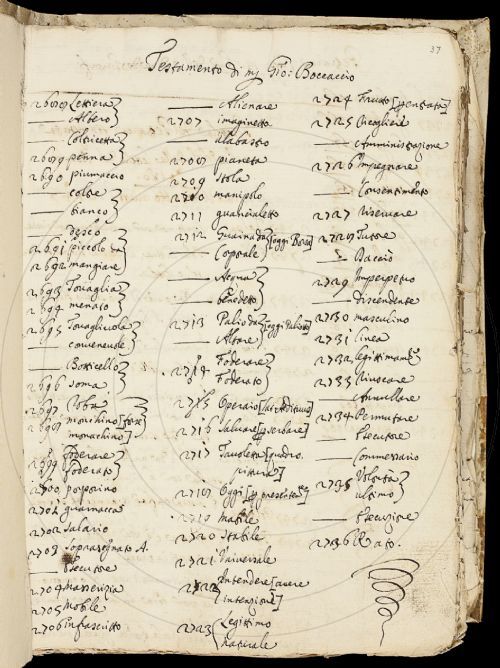 37
Testamento di mJ Gio: Boccaccio
Lettiera
Albero
Coltricetta
2689 penna
2690 piumaccio
coltre
bianco
desco
2691 piccolo da
2692 mangiare
2693 Tovaglia
2694 menato
2695 Tovagliuola
convenevole
Botticello
2696 soma
2697 Roba
monachino]
2699 Foderare
Foderato
2700 porporino
2701 guarnacca
2702 salario
2703 soprassegnato A.
Esecutore
2704 Masserizia
2705 Mobile
2706 infrascritto
Alienare
2707 imaginetta
Alabastro
2708 pianeta
2709 Stola
2710 manipolo
2711 guancialetto
2712 Guaina da [oggi Borsa]
Corporale
Acqua
benedetta
2713 Palio da [oggi Paliotto]
Altare
2714 Foderare
Foderato
2715 Operaio
2716 salvare [serbare]
2717 Tavoletta
2718 Oggi
2719 Mobile
2720 Stabile
2721 Universale
2722 Intendere [avere
intenzione]
2723 Legittimo
naturale
2724 Frutto
2725 Ricogliere
Amministrazione
2726 impegnare
Consentimento
2727 Riservare
2728 Tutore
2729 Imperpetuo
discendente
2730 masculino
2731 linea
2733 Rinovare
Annullare
2734 Permutare
Esecutore
Commessario
2735 Volontà
ultima
Esecuzione
2736 Rogato.